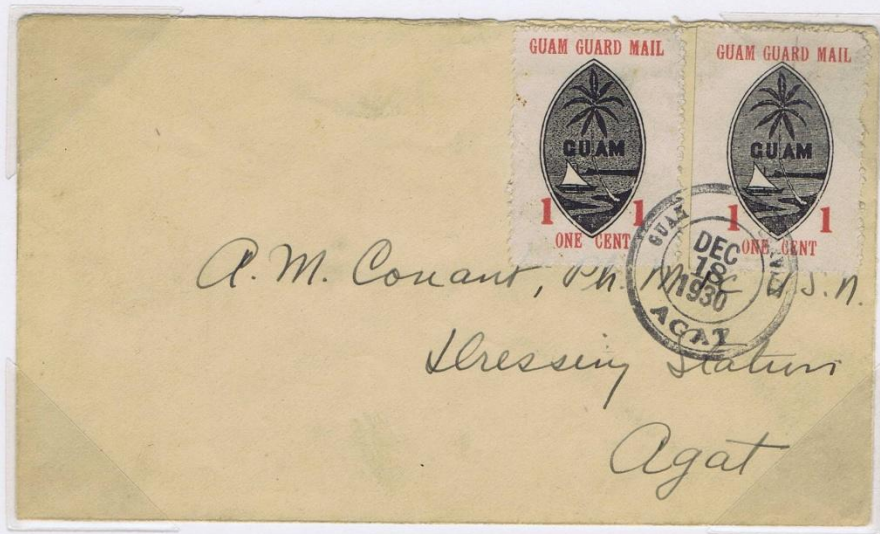 GUAM GUARD MAIL
GUAM
1 1
ONE CENT
GUAM GUARD MAIL
GUAM
1 1
ONE CENT
GUAM
DEC
18
1930
AGAT
A. M. Conant, Ph. M. U.S.N.
Dressing Station
Agat